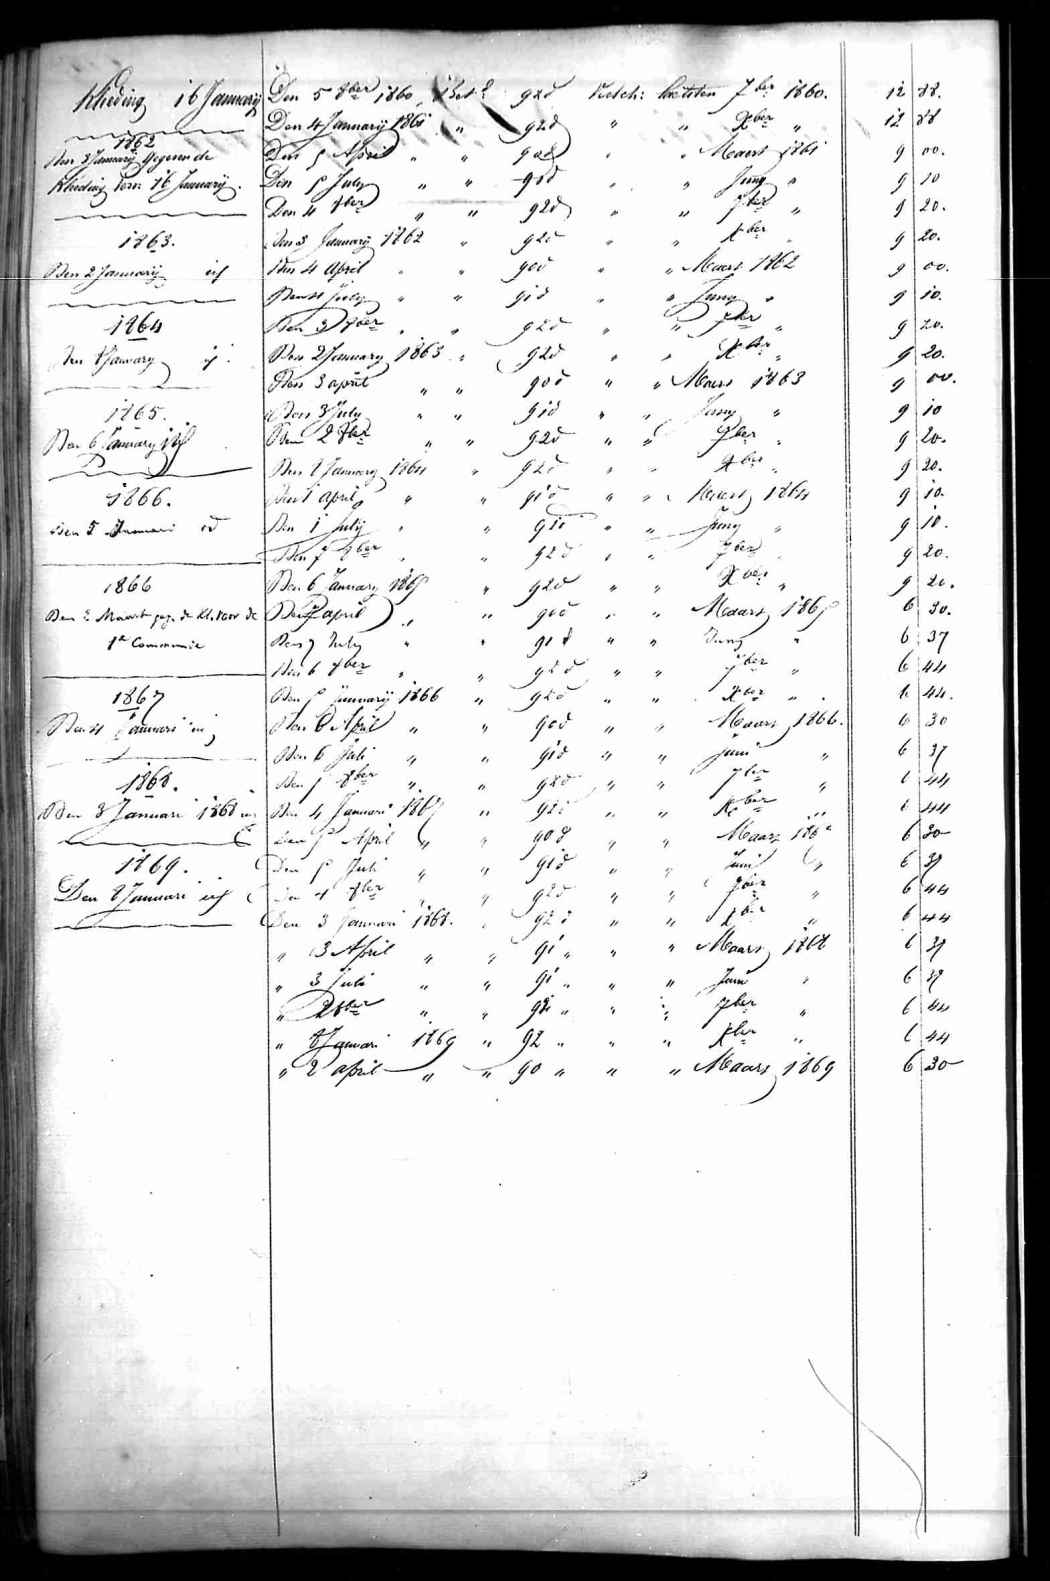 Kleding 16 January
1862
Den 3 January Gegeven de
Kleding Vom 16 January.
1863.
Den 2 January id
1864
Den 8 January id
1865.
Den 6 January id
1866.
Den 5 Januari id
1866
Den 2 Maart geg. de Kl. voor de
1e Communie
1867
Den 4 Januari id
1868.
Den 3 Januari 1868 id
1869.
Den 8 Januari id
Den 5 8ber 1860 Betd 92 d laetsten 7ber 1860. 12 88.
Den 4 January 1861 " 92 d " " Xber " 12 88
Den 5 April " " 90 d " " Maart 1861 9 00.
Den 5 July " " 91 d " " Juny " 9 10
Den 4 8ber " " 92 d " " 7ber " 9 20.
Den 3 January 1862 " 92 d " " Xber " 9 20.
Den 4 April " " 90 d " " Maart 1862 9 00.
Den 4 July " " 91 d " " Juny " 9 10.
Den 3 8ber " " 92 d " " 7ber " 9 20.
Den 2 January 1863 " 92 d " " Xber " 9 20.
Den 3 april " " 90 d " " Maart 1863 9 00.
Den 3 July " " 91 d " " Juny " 9 10
Den 2 8ber " " 92 d " " 7ber " 9 20.
Den 8 January 1864 " 92 d " " Xber " 9 20.
Den 1 april " " 91 d " " Maart 1864 9 10.
Den 1 July " " 91 d " " Juny " 9 10.
Den 7 8ber " " 92 d " " 7ber " 9 20.
Den 6 January 1865 " 92 d " " Xber " 9 20.
Den 7 april " " 90 d " " Maart 1865 6 30.
Den 7 July " " 91 d " " Juny " 6 37
Den 6 8ber " " 92 d " " 7ber " 6 44
Den 5 January 1866 " 92 d " " Xber " 6 44.
Den 6 April " " 90 d " " Maart 1866. 6 30
Den 6 Juli " " 91 d " " Juni " 6 37
Den 5 8ber " " 92 d " " 7ber " 6 44
Den 4 Januari 1867 " 92 d " " Xber " 6 44
Den 5 April " " 90 d " " Maart 1867 6 30
Den 5 Juli " " 91 d " " Juni " 6 37
Den 4 8ber " " 92 d " " 7ber " 6 44
Den 3 Januari 1868. " 92 d " " Xber " 6 44
" 3 April " " 91 " " " Maart 1868 6 37
" 3 Juli " " 91 " " " Juni " 6 37
" 2 8ber " " 92 " " " 7ber " 6 44
" 8 Januari 1869 " 92 " " " Xber " 6 44
" 2 april " " 90 " " " Maart 1869 6 30